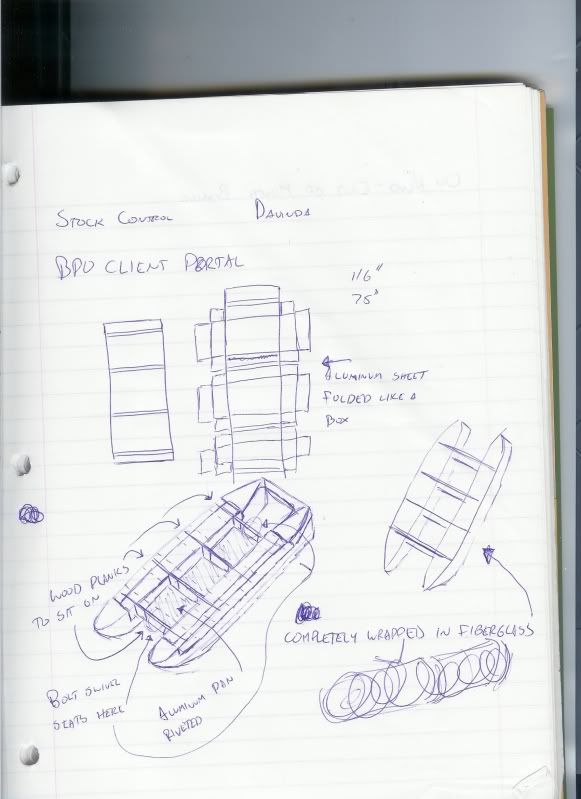 STOCK CONTROL
DAVINDA
BPU CLIENT PORTAL
1/6"
75"
ALUMINUM SHEET
FOLDED LIKE A
BOX
WOOD PLANKS
TO SIT ON
COMPLETELY WRAPPED IN FIBERGLASS
BOLT SWIVEL
SEATS HERE
ALUMINUM PAN
RIVETED